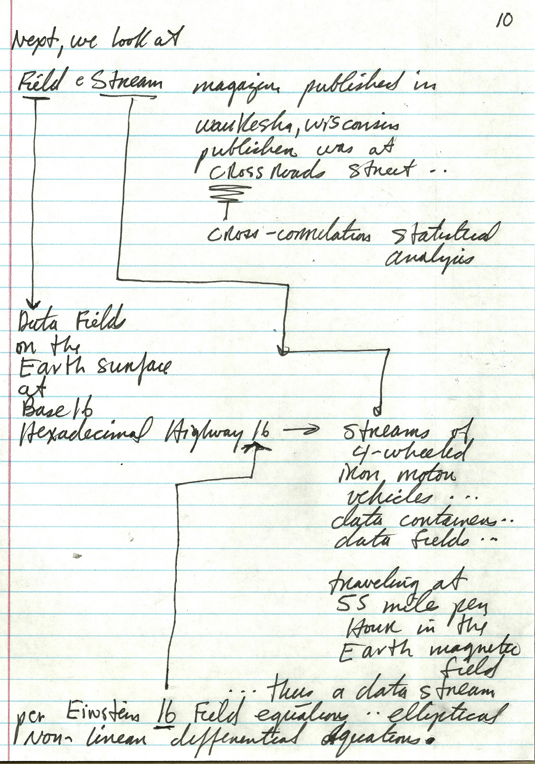 10
Next, we look at
Field & Stream magazine published in
waukesha, wisconsin
publisher was at
CROSS ROADS Street ..
cross-correlation statistical
analysis
Data Fields
on the
Earth surface
at
Base 16
Hexadecimal Highway 16 → streams of
4-wheeled
iron motor
vehicles ...
data containers..
data fields ..
traveling at
55 mile per
Hour in the
Earth magnetic
field
... thus a data stream
per Einstein 16 Field equations .. elliptical
Non-linear differential equations.